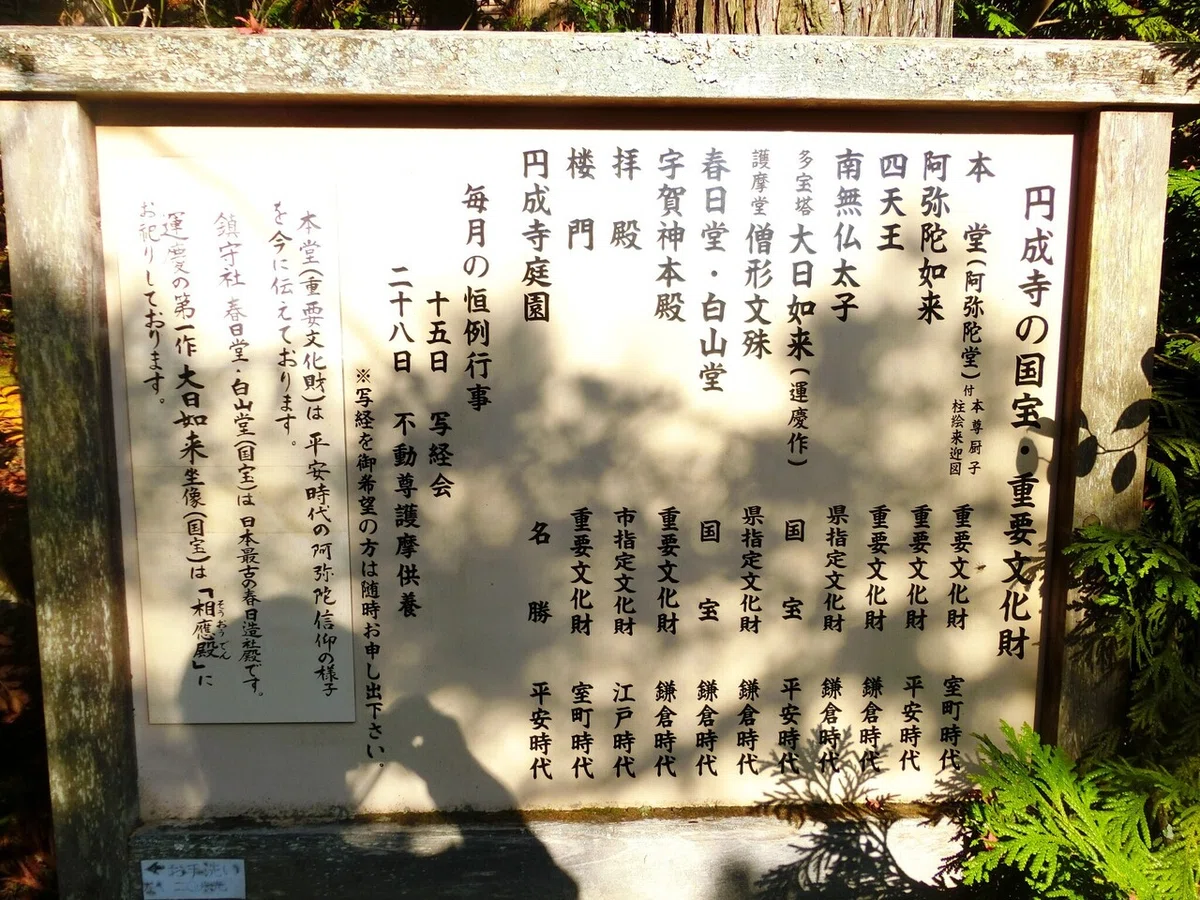 円成寺の国宝・重要文化財
本堂(阿弥陀堂)付 本尊厨子 柱絵来迎図 重要文化財 室町時代
阿弥陀如来 重要文化財 平安時代
四天王 重要文化財 鎌倉時代
南無仏太子 県指定文化財 鎌倉時代
多宝塔 大日如来(運慶作) 国宝 平安時代
護摩堂 僧形文殊 県指定文化財 鎌倉時代
春日堂・白山堂 国宝 鎌倉時代
宇賀神本殿 重要文化財 鎌倉時代
拝殿 市指定文化財 江戸時代
楼門 重要文化財 室町時代
円成寺庭園 名勝 平安時代
毎月の恒例行事
十五日 写経会
二十八日 不動尊護摩供養
※写経を御希望の方は随時お申し出下さい。
本堂(重要文化財)は 平安時代の阿弥陀信仰の様子
を今に伝えております。
鎮守社 春日堂・白山堂(国宝)は 日本最古の春日造社殿です。
運慶の第一作 大日如来坐像(国宝)は「相應殿」に
そうおうでん
お祀りしております。
←お手洗い